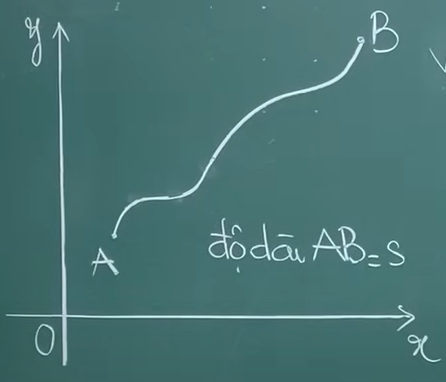 y
B
A
độ dài AB = S
O
x